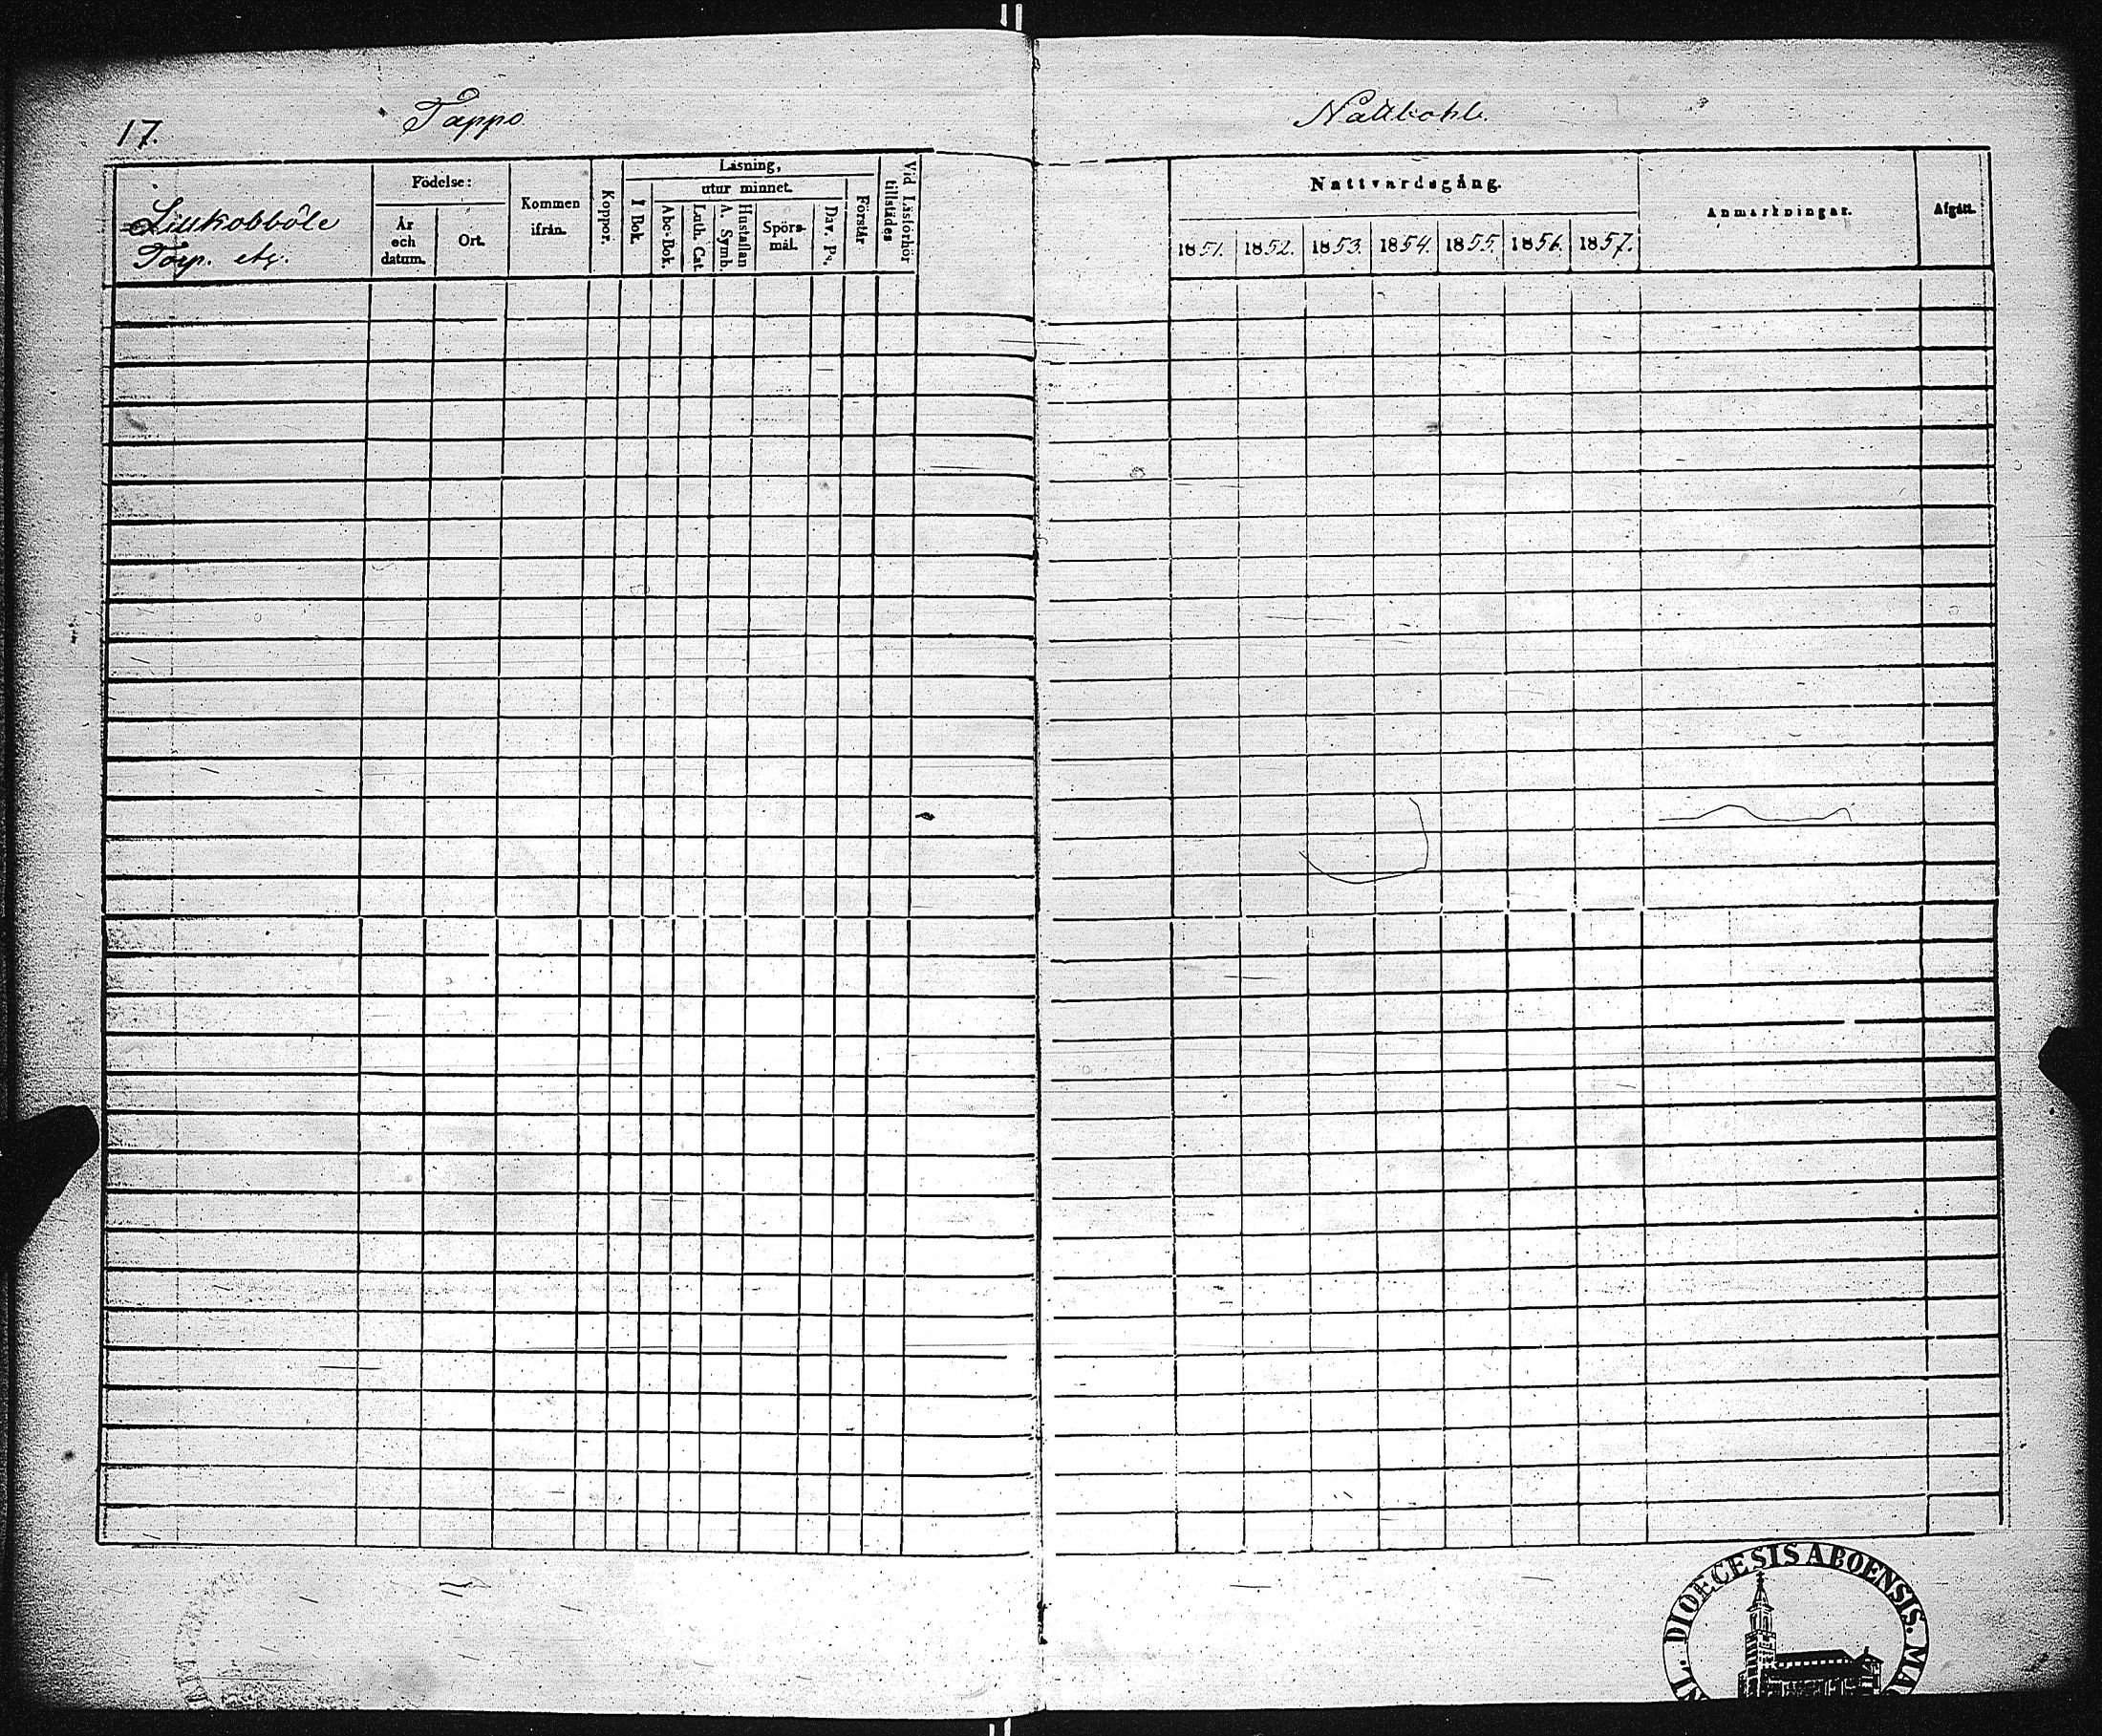 17.
Tappo
Nattbohle.
Liukobböle
Torp. etc.
Födelse:
År
och
datum.
Ort.
Kommen
ifrån.
Koppor.
Läsning,
I Bok.
utur minnet.
Abc-Bok.
Luth. Cat.
A. Symb.
Hustaflan
Spörs-
mål.
Dav. Ps.
Förstår
Vid Läsförhör
tillstädes
Nattvardsgång.
1851.
1852.
1853.
1854.
1855.
1856.
1857.
Anmärkningar.
Afgått.
DIOECESIS ABOENSIS.